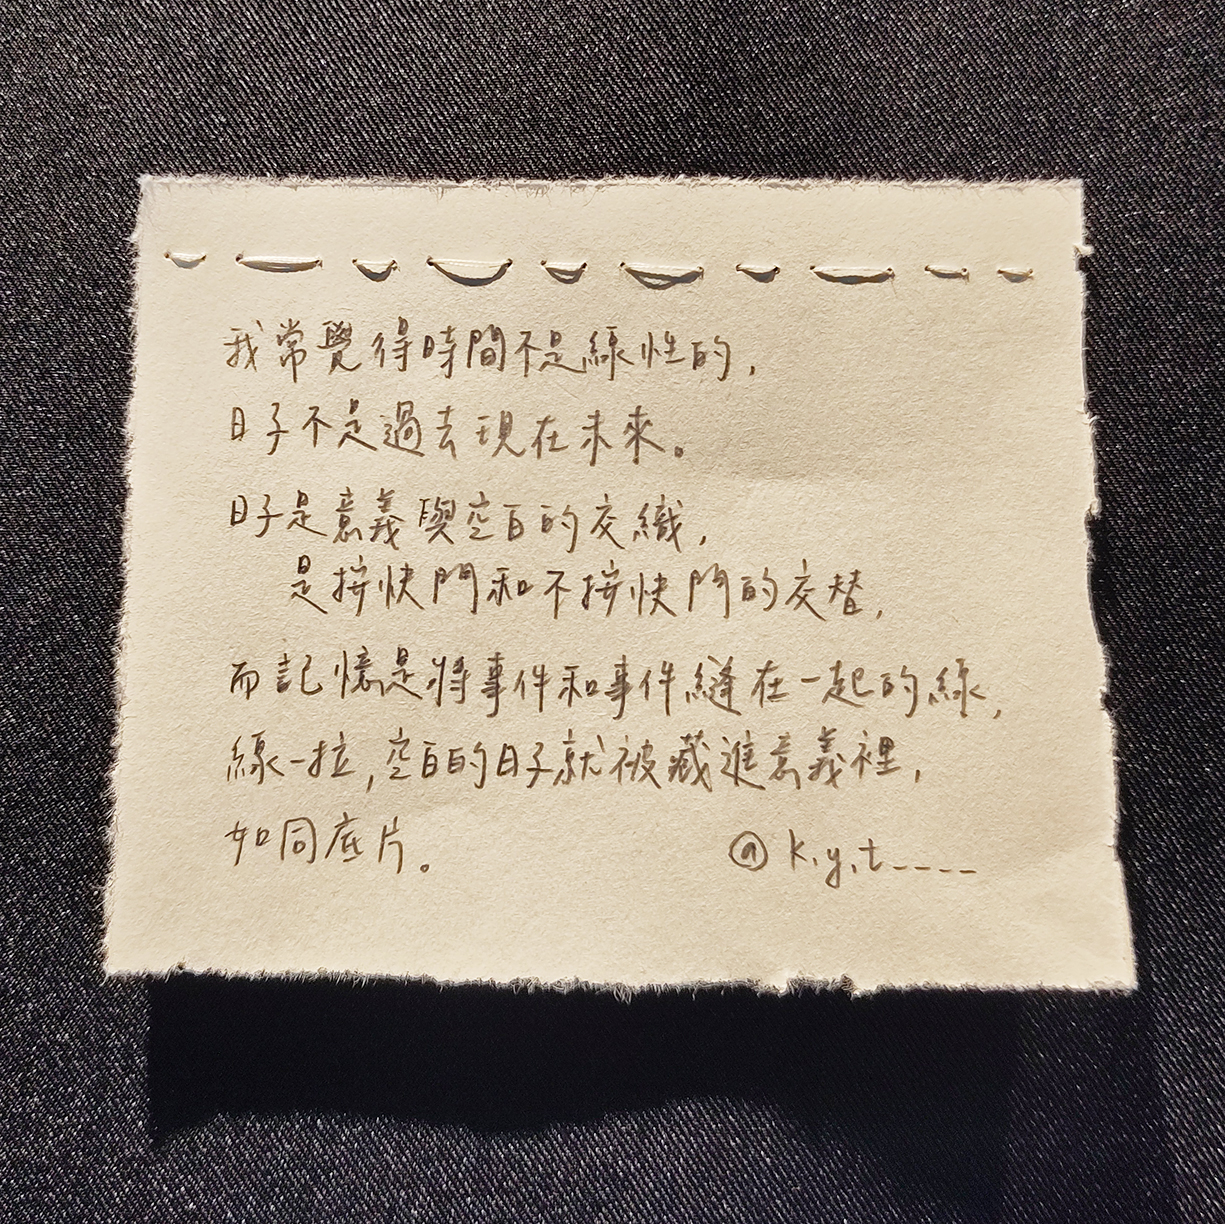 我常覺得時間不是線性的，
日子不是過去現在未來。
日子是意義與空白的交織，
是按快門和不按快門的交替，
而記憶是將事件和事件縫在一起的線，
線一拉，空白的日子就被藏進意義裡，
如同底片。
@k.y.t____